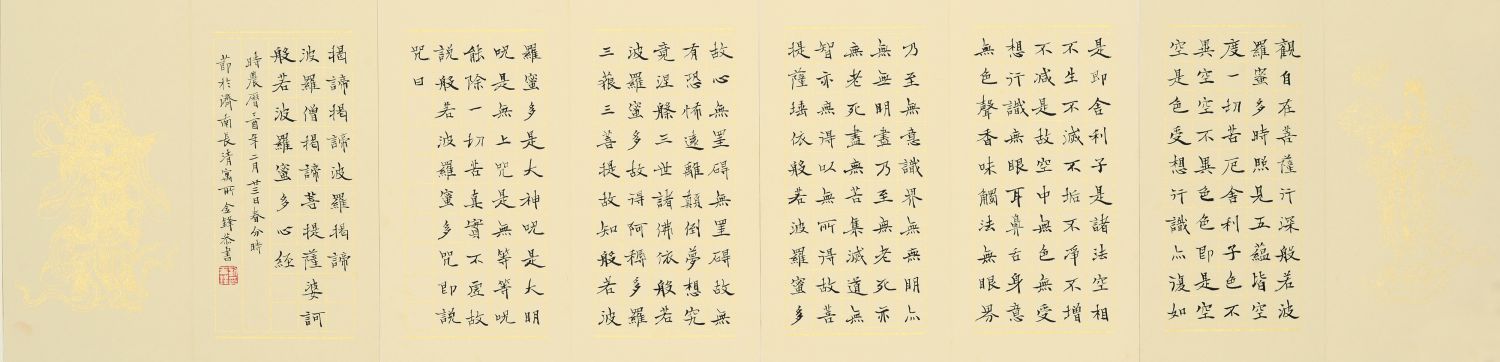 觀自在菩薩行深般若波
羅蜜多時照見五蘊皆空
度一切苦厄舍利子色不
異空空不異色色即是空
空是色受想行識亦復如
是即舍利子是諸法空相
不生不滅不垢不淨不增
不減是故空中無色無受
想行識無眼耳鼻舌身意
無色聲香味觸法無眼界
乃至無意識界無無明亦
無無明盡乃至無老死亦
無老死盡無苦集滅道無
智亦無得以無所得故菩
提薩埵依般若波羅蜜多
故心無罣碍無罣碍故無
有恐怖遠離顛倒夢想究
竟涅槃三世諸佛依般若
波羅蜜多故得阿耨多羅
三藐三菩提故知般若波
羅蜜多是大神呪是大明
呪是無上咒是無等等呪
能除一切苦真實不虛故
說般若波羅蜜多咒即說
咒曰
揭諦揭諦波羅揭諦
波羅僧揭諦菩提薩婆訶
般若波羅蜜多心経
時農曆丁酉年二月廿三日春分時
節於濟南長清寓所金鋒恭書